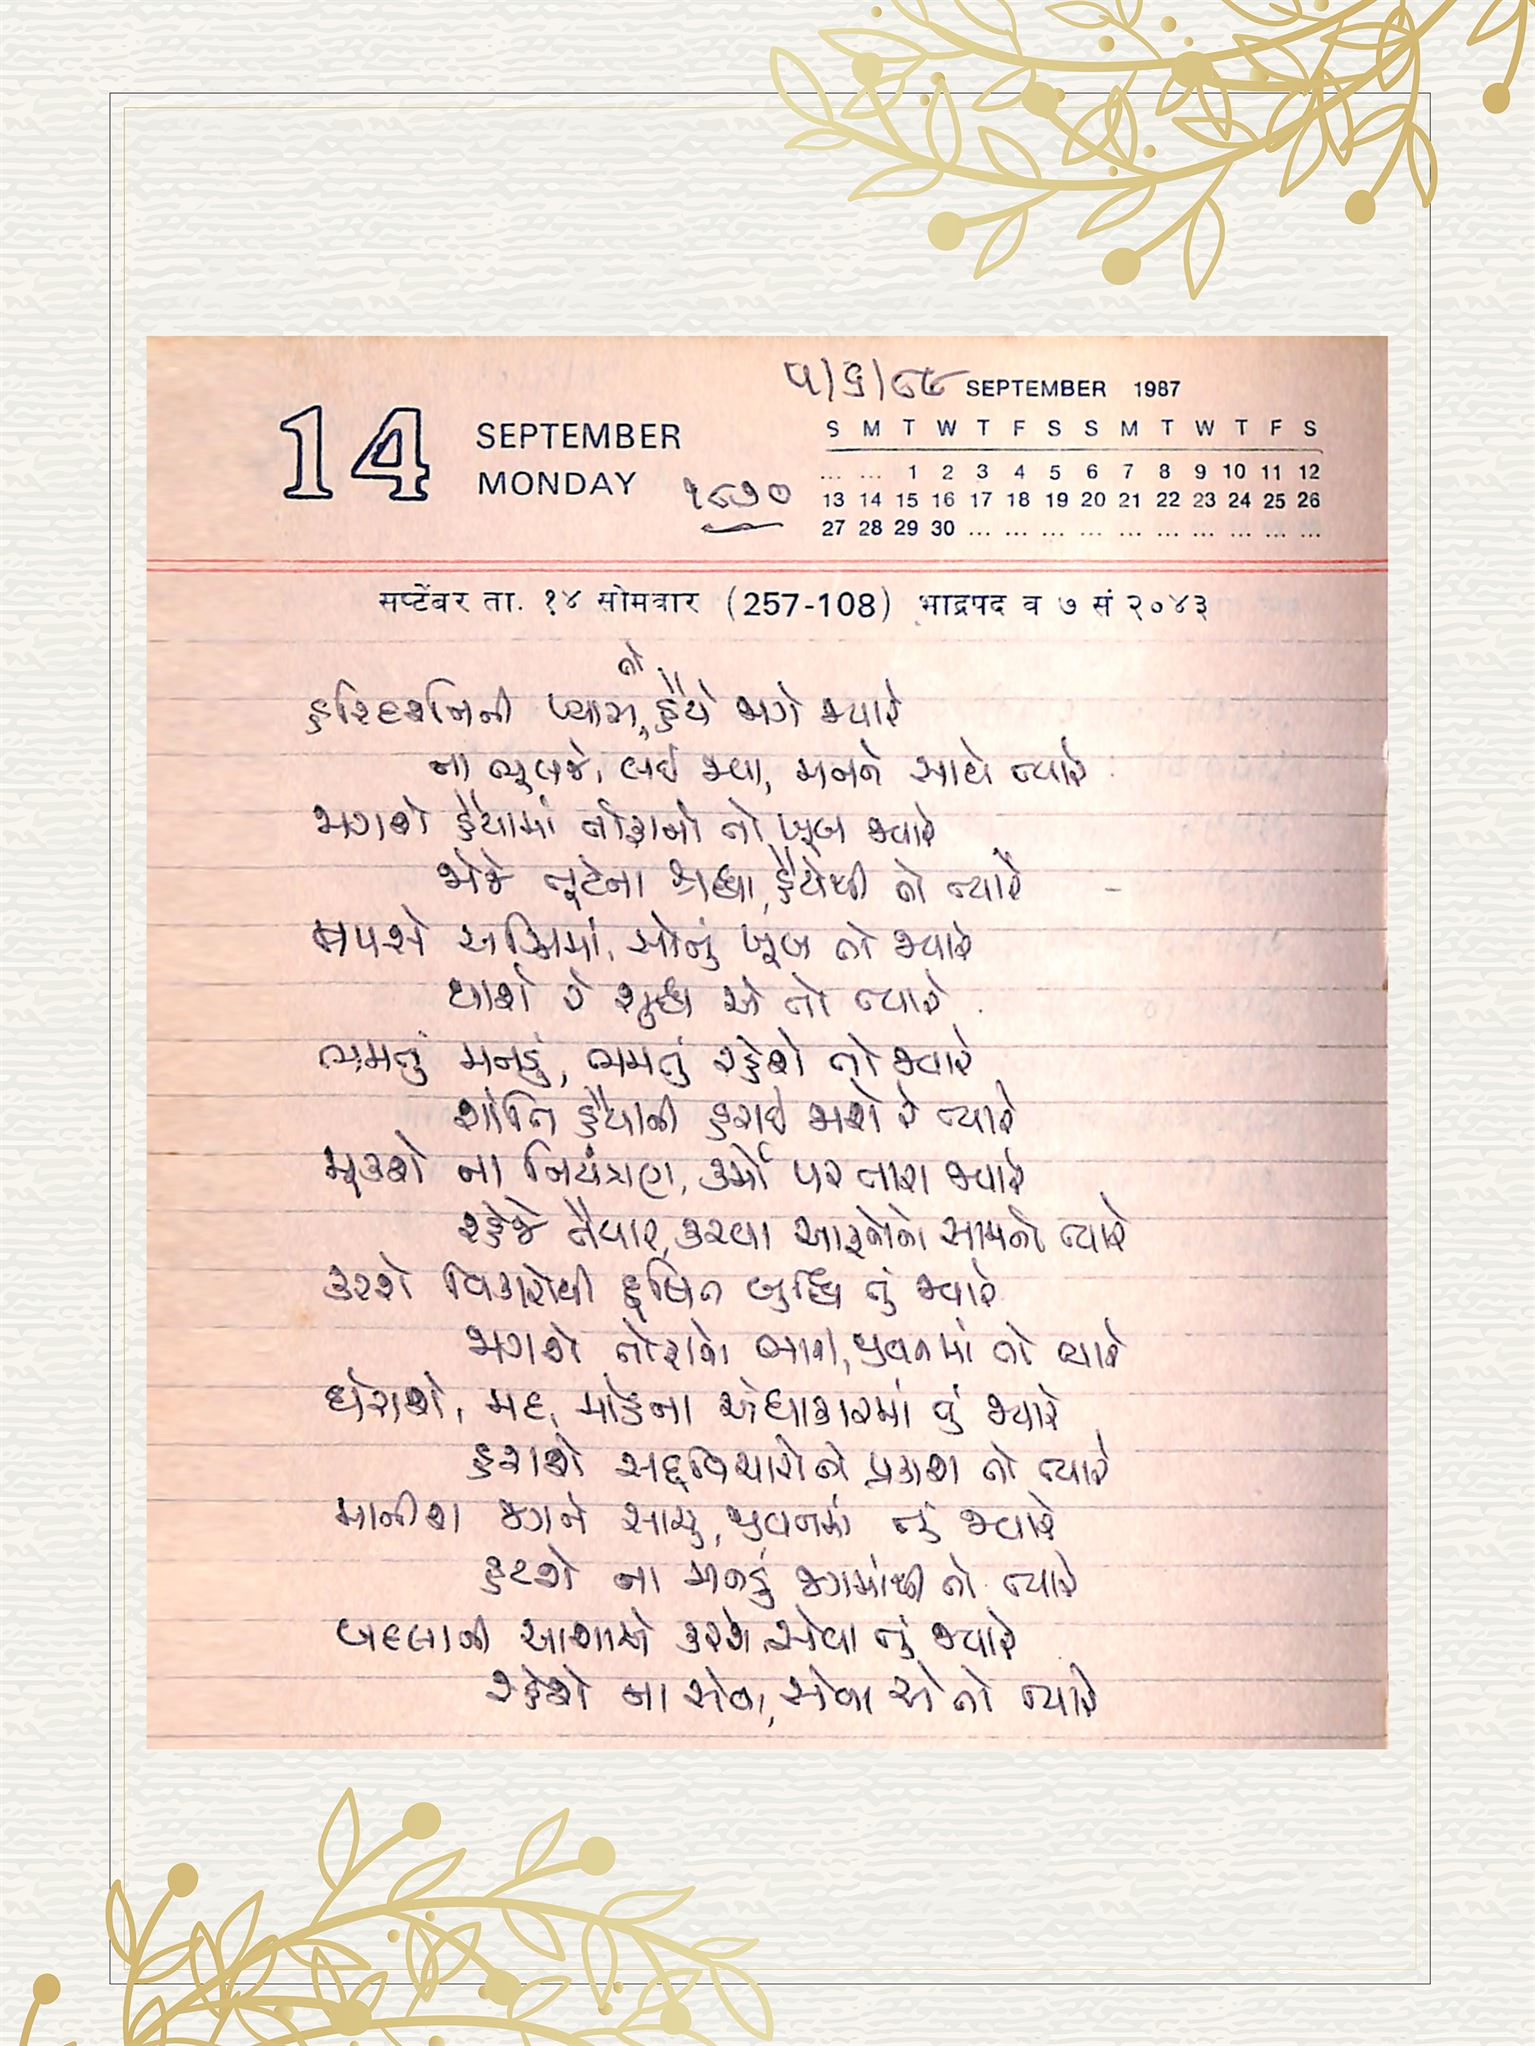 ૫/૬/૮૮ SEPTEMBER 1987
14 SEPTEMBER S M T W T F S S M T W T F S
MONDAY ૧૮૭૦ ... ... 1 2 3 4 5 6 7 8 9 10 11 12
13 14 15 16 17 18 19 20 21 22 23 24 25 26
27 28 29 30 ... ... ... ... ... ... ... ... ... ...
सप्टेंबर ता. १४ सोमवार (257-108) भाद्रपद व ७ सं २०४३
તો
હરિદર્શનની પ્યાસ, હૈયે જાગે જ્યારે
ના ભૂલજે, લઈ જવા, મનને સાથે ત્યારે
જાગશે હૈયામાં તોફાનો તો ખૂબ જ્યારે
જોજે તૂટેના શ્રદ્ધા, હૈયેથી તો ત્યારે
તપશે અગ્નિમાં, સોનું ખૂબ તો જ્યારે
થાશે રે શુદ્ધ એ તો ત્યારે
ભમતું મનડું, ભમતું રહેશે તો જ્યારે
શાંતિ હૈયાની હરાઈ જાશે રે ત્યારે
મૂકશે ના નિયંત્રણ, કર્મો પર તારા જ્યારે
રહેજે તૈયાર, કરવા આફતોનો સામનો ત્યારે
કરશે વિકારોથી દૂષિત બુદ્ધિ તું જ્યારે
જાગશે તોફાનો ભારી, જીવનમાં તો ત્યારે
ઘેરાશે, મદ, મોહના અંધકારમાં તું જ્યારે
હરાશે સદ્દવિચારોનો પ્રકાશ તો ત્યારે
માનીશ જગને સાચુ, જીવનમાં તું જ્યારે
હટશે ના મનડું જગમાંથી તો ત્યારે
બદલાની આશાએ કરશે સેવા તું જ્યારે
રહેશે ના સેવા, સેવા એ તો ત્યારે